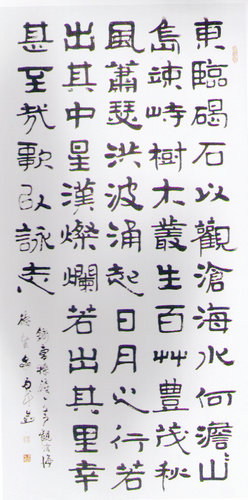 東臨碣石以觀滄海水何澹山
島竦峙樹木叢生百艸豐茂秋
風蕭瑟洪波涌起日月之行若
出其中星漢燦爛若出其里幸
甚至哉歌以詠志
錄曹操觀滄海